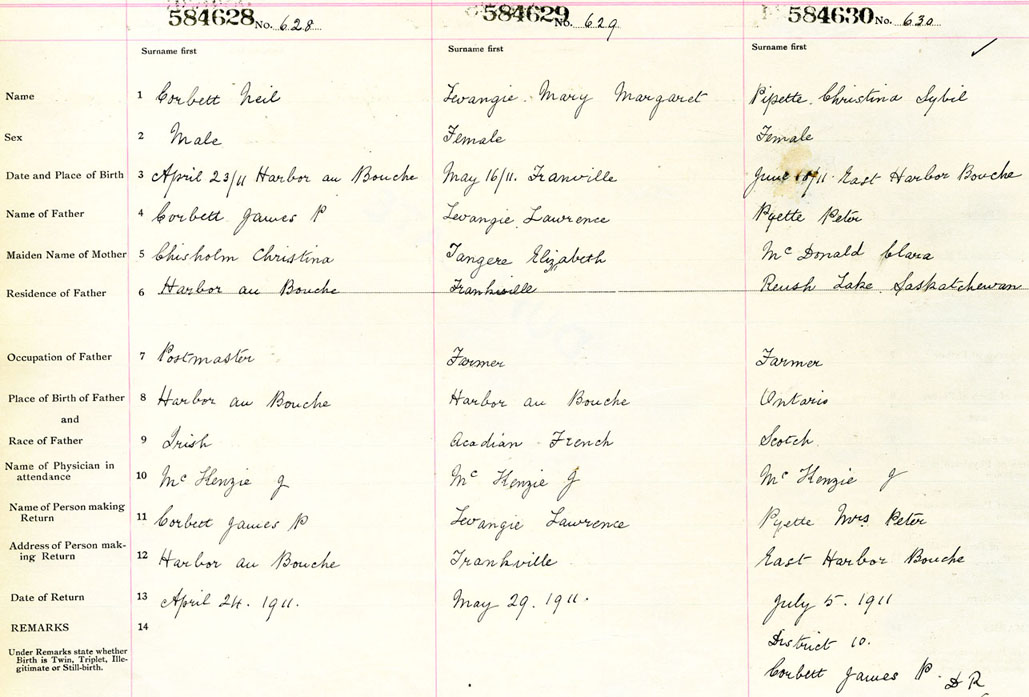 584628 No. 628 584629 No. 629 584630 No. 630
Surname first Surname first Surname first
Name 1 Corbett Neil Levangie Mary Margaret Pipette Christina Sybil
Sex 2 Male Female Female
Date and Place of Birth 3 April 23/11 Harbor au Bouche May 16/11. Franville June 18/11. East Harbor Bouche
Name of Father 4 Corbett James P Levangie Lawrence Pyette Peter
Maiden Name of Mother 5 Chisholm Christina Tangere Elizabeth Mc Donald Clara
Residence of Father 6 Harbor au Bouche Frankville Lake Saskatchewan
Occupation of Father 7 Postmaster Farmer Farmer
Place of Birth of Father 8 Harbor au Bouche Harbor au Bouche Ontario
and
Race of Father 9 Irish Acadian French Scotch
Name of Physician in
attendance 10 Mc Kenzie J Mc Kenzie J Mc Kenzie J
Name of Person making
Return 11 Corbett James P Levangie Lawrence Pyette Mrs Peter
Address of Person mak-
ing Return 12 Harbor au Bouche Frankville East Harbor Bouche
Date of Return 13 April 24. 1911. May 29. 1911. July 5. 1911
REMARKS 14
District 10.
Under Remarks state whether
Birth is Twin, Triplet, Ille-
gitimate or Still-birth.
Corbett James P. D R